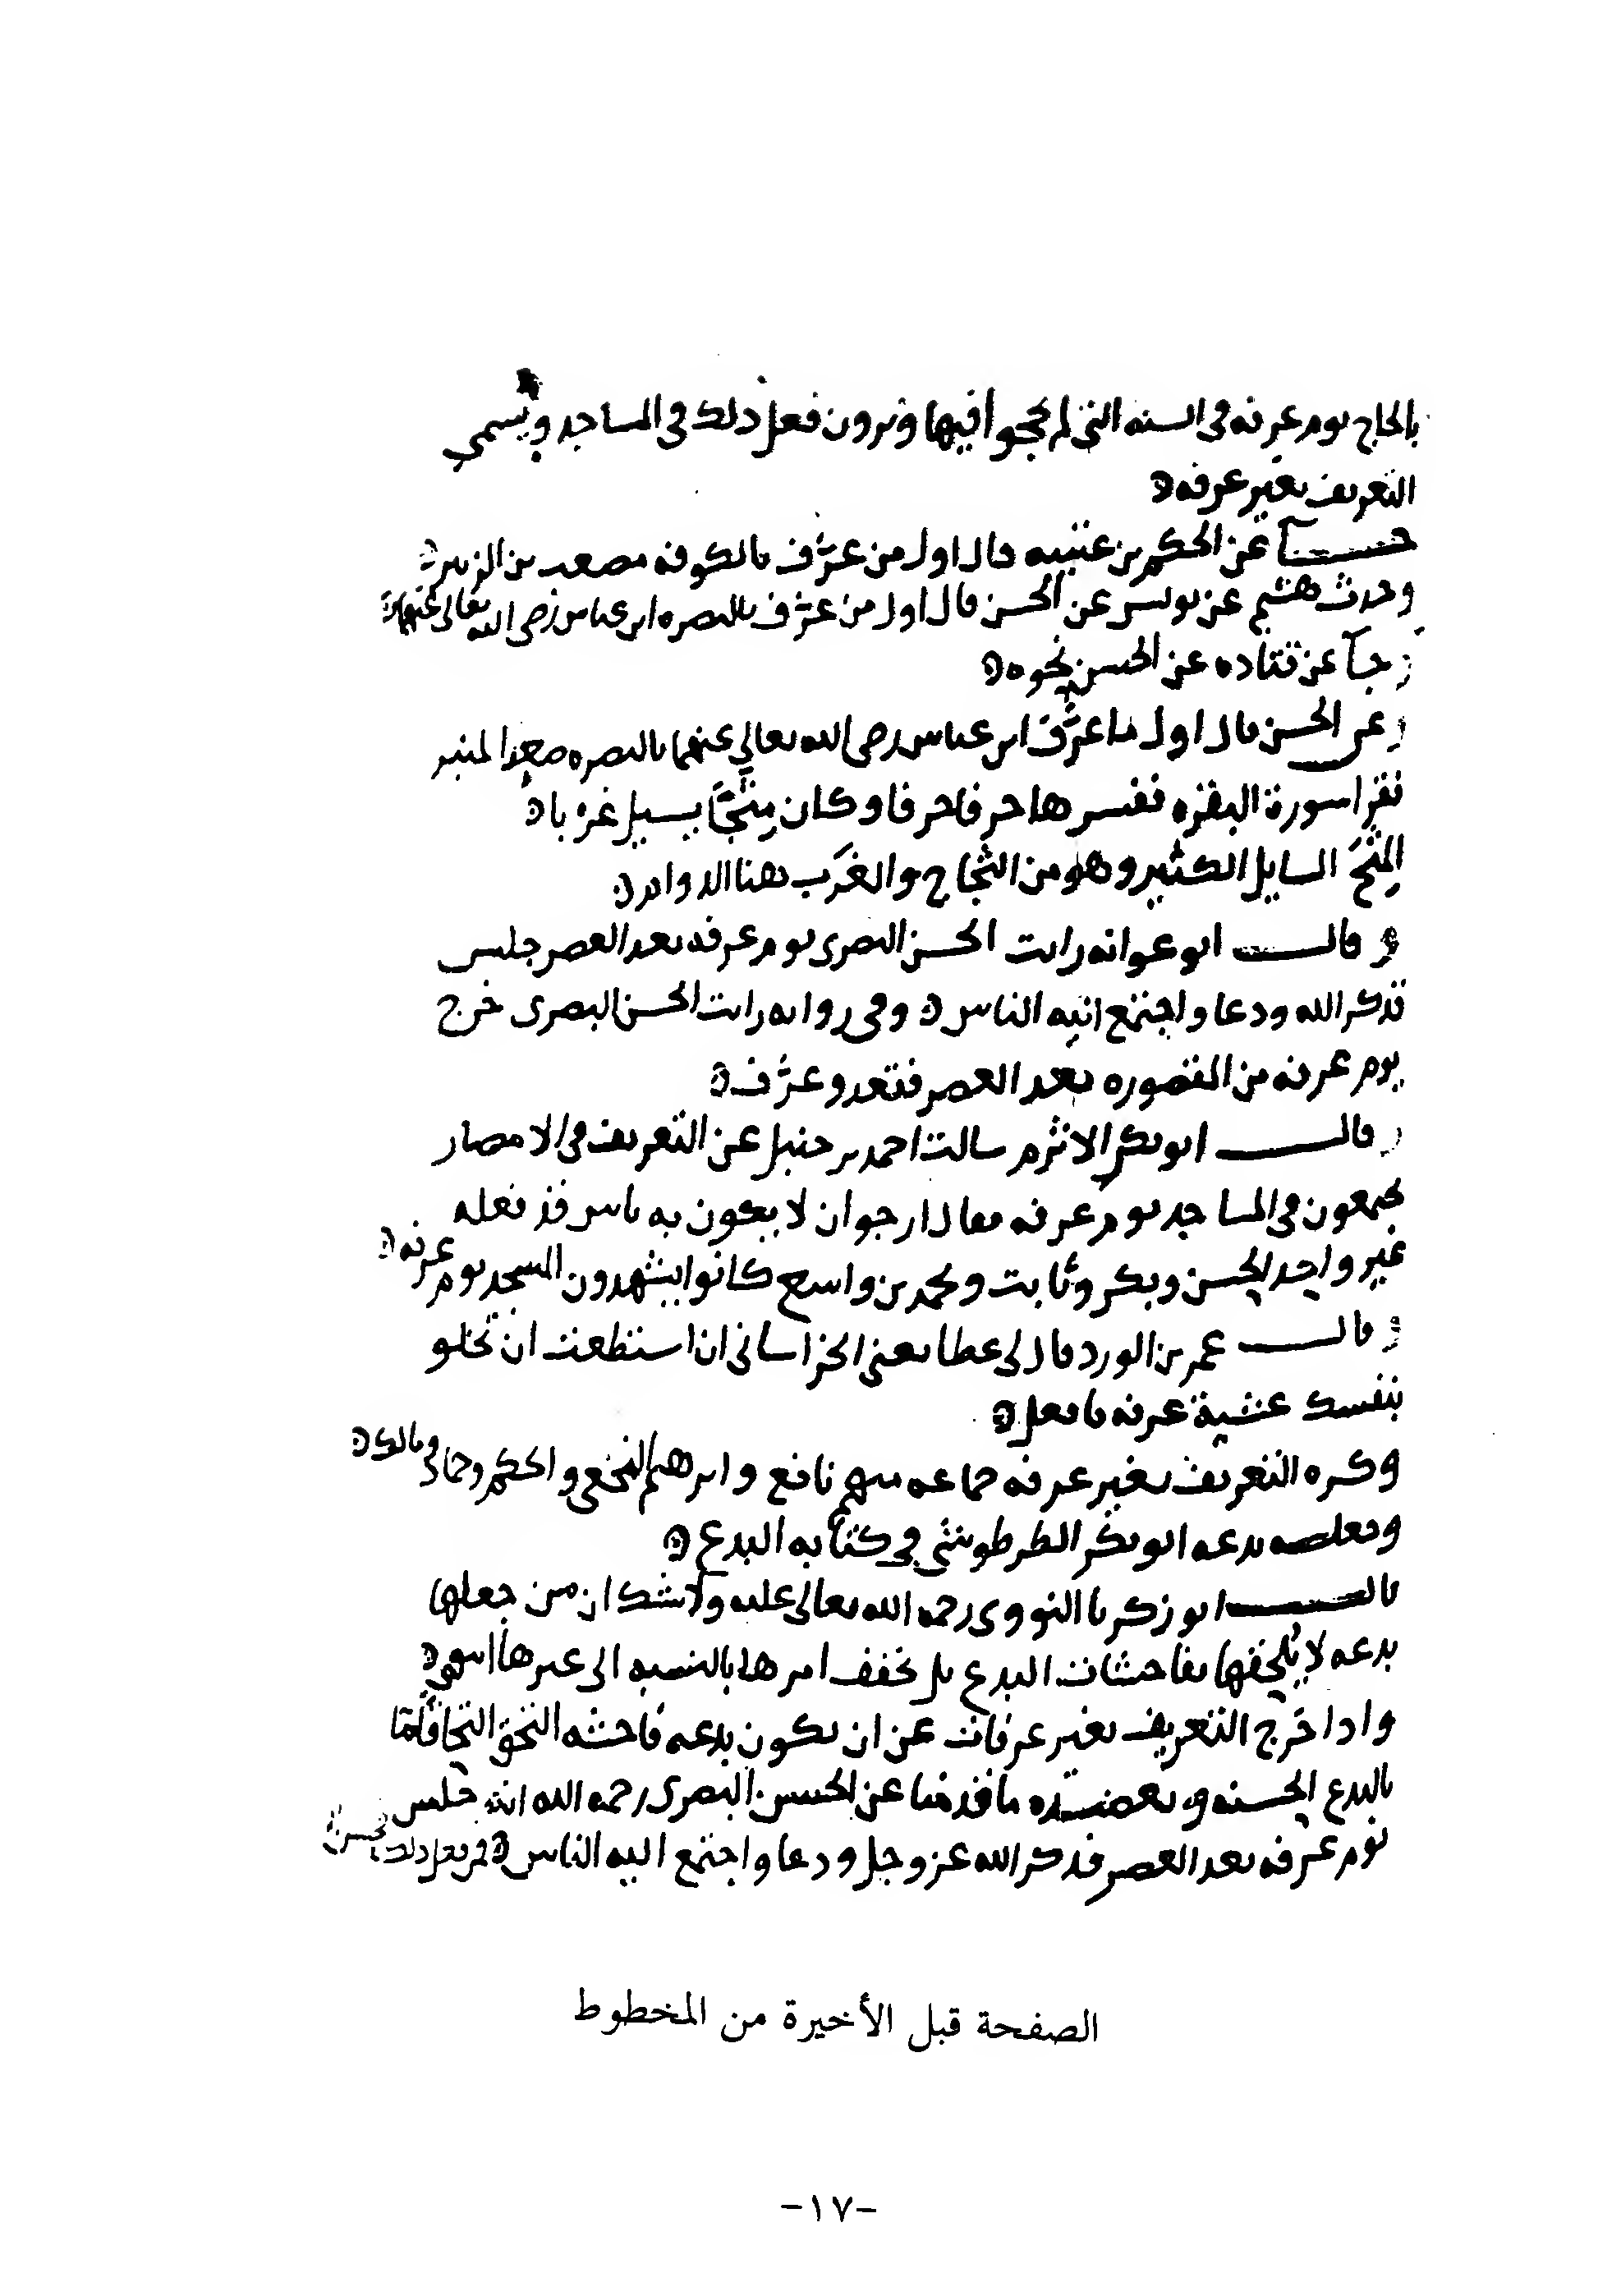 بالحاج يوم عرفه في السنه التي لم يحجوا فيها ويرون فعل ذلك في المساجد ويسمي
التعريف بغير عرفه
جا عن الحكم بن عتيبه قال اول من عرَّف بالكوفه مصعب بن الزبير
وحدث هشيم عن يونس عن الحسن قال اول من عرَّف بالبصره ابن عباس رضي الله تعالى عنهما
وجآ عن قتاده عن الحسن نحوه
وعن الحسن قال اول ما عرَّف ابن عباس رضي الله تعالي عنهما بالبصره صعد المنبر
فقرا سورة البقره ففسرها حرفا حرفا وكان مِثَجًّا يسيل غربا
المِثَجّ السايل الكثير وهو من الثجاج والغَرَب هنا
وقال ابو عوانه رايت الحسن البصرى يوم عرفه بعد العصر جلس
فذكر الله ودعا واجتمع اليه الناس وفي روايه رايت الحسن البصرى خرج
يوم عرفه من المقصوره بعد العصر فقعد وعرَّف
وقال ابو بكر الاثرم سالت احمد بن حنبل عن التعريف في الامصار
يجمعون في المساجد يوم عرفه فقال ارجوا ان لا يكون به باس قد فعله
غير واحد الحسن وبكر وثابت ومحمد بن واسع كانوا يشهدون المسجد يوم عرفه
وقال عمر بن الورد قال لي عطا يعني الخراساني ان استطعت ان تخلو
بنفسك عشية عرفه فافعل
وكره التعريف بغير عرفه جماعه منهم نافع وابرهيم النخعي والحكم وحماد ومالك
بدعه ابو بكر الطرطوشي في كتابه البدع
قال ابو زكريا النووى رحمه الله تعالى عليه ولا شك ان من جعلها
بدعه لا يُلحقها بفاحشات البدع بل تخفف امرها بالنسبه الى غيرها انتهى
واذا خرج التعريف بغير عرفات عن ان يكون بدعه فاحشه التحق
بالبدع الحسنه ويعضده ما قدمنا عن الحسن البصرى رحمه الله انه جلس
يوم عرفه بعد العصر فذكر الله عز وجل ودعا واجتمع اليه الناس
الصفحة قبل الأخيرة من المخطوط
-١٧-